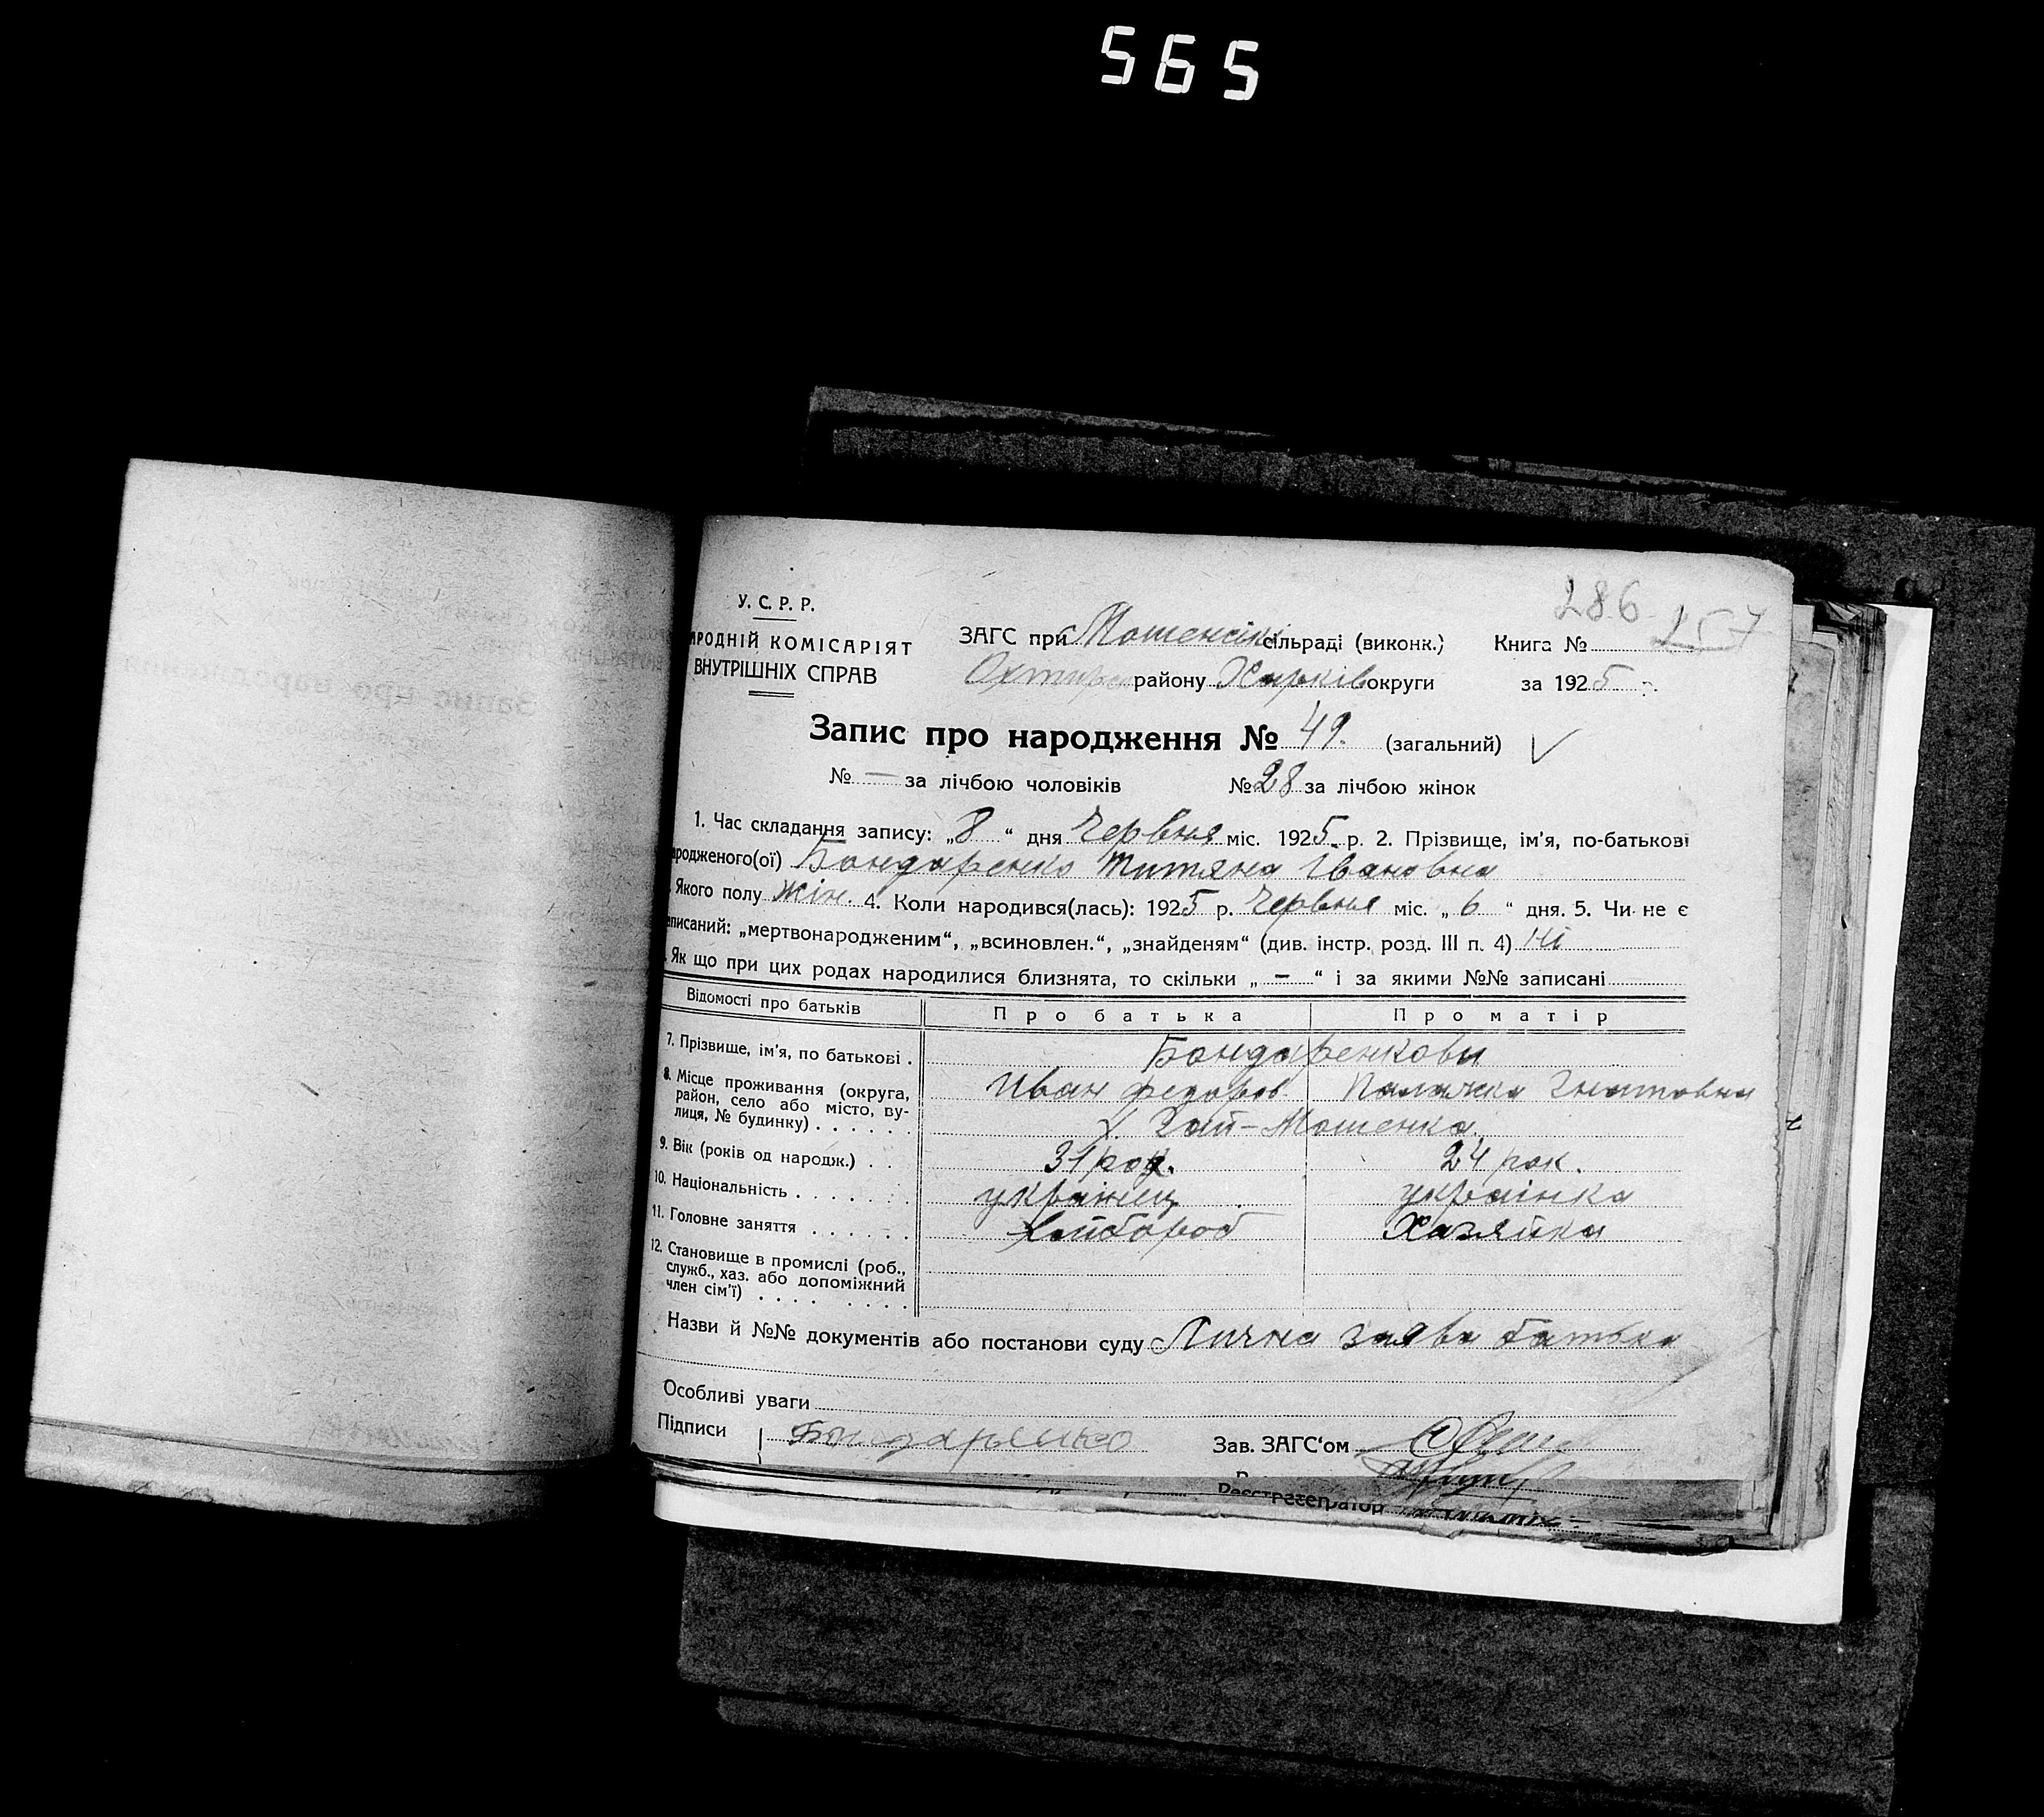 565
286 257
У. С. Р. Р.
АРОДНІЙ КОМІСАРІЯТ
ВНУТРІШНІХ СПРАВ
ЗАГС при Мошенськ сільраді (виконк.) Книга №
Охтирс району Харків округи за 1925
Запис про народження № 49. (загальний)
№ — за лічбою чоловіків № 28 за лічбою жінок
1. Час складання запису: „8“ дня Червня міс. 1925 р. 2. Прізвище, ім'я, по-батькові
ародженого(ої) Бондаренко Титяна Івановна
Якого полу жін. 4. Коли народився(лась): 1925 р. Червня міс. „6“ дня. 5. Чи не є
еписаний: „мертвонародженим“, „всиновлен.“, „знайденям“ (див. інстр. розд. III п. 4) Ні
Як що при цих родах народилися близнята, то скільки „ – “ і за якими №№ записані
Відомості про батьків Про батька Про матір
7. Прізвище, ім'я, по батькові . Бондаренкови
Иван Федоров Палажка Гнатовна
8. Місце проживання (округа, район, село або місто, вулиця, № будинку) . . . . . . х. Гай-Мошенка.
9. Вік (років од народж.) . . 31 рок. 24 рок.
10. Національність . . . . . . . українец українка
11. Головне заняття . . . . . . Хлібороб Хазяйка
12. Становище в промислі (роб., служб., хаз. або допоміжний член сім'ї) . . . . . . . .
Назви й №№ документів або постанови суду Лична заява батька
Особливі уваги
Підписи Бондаренко Зав. ЗАГС'ом